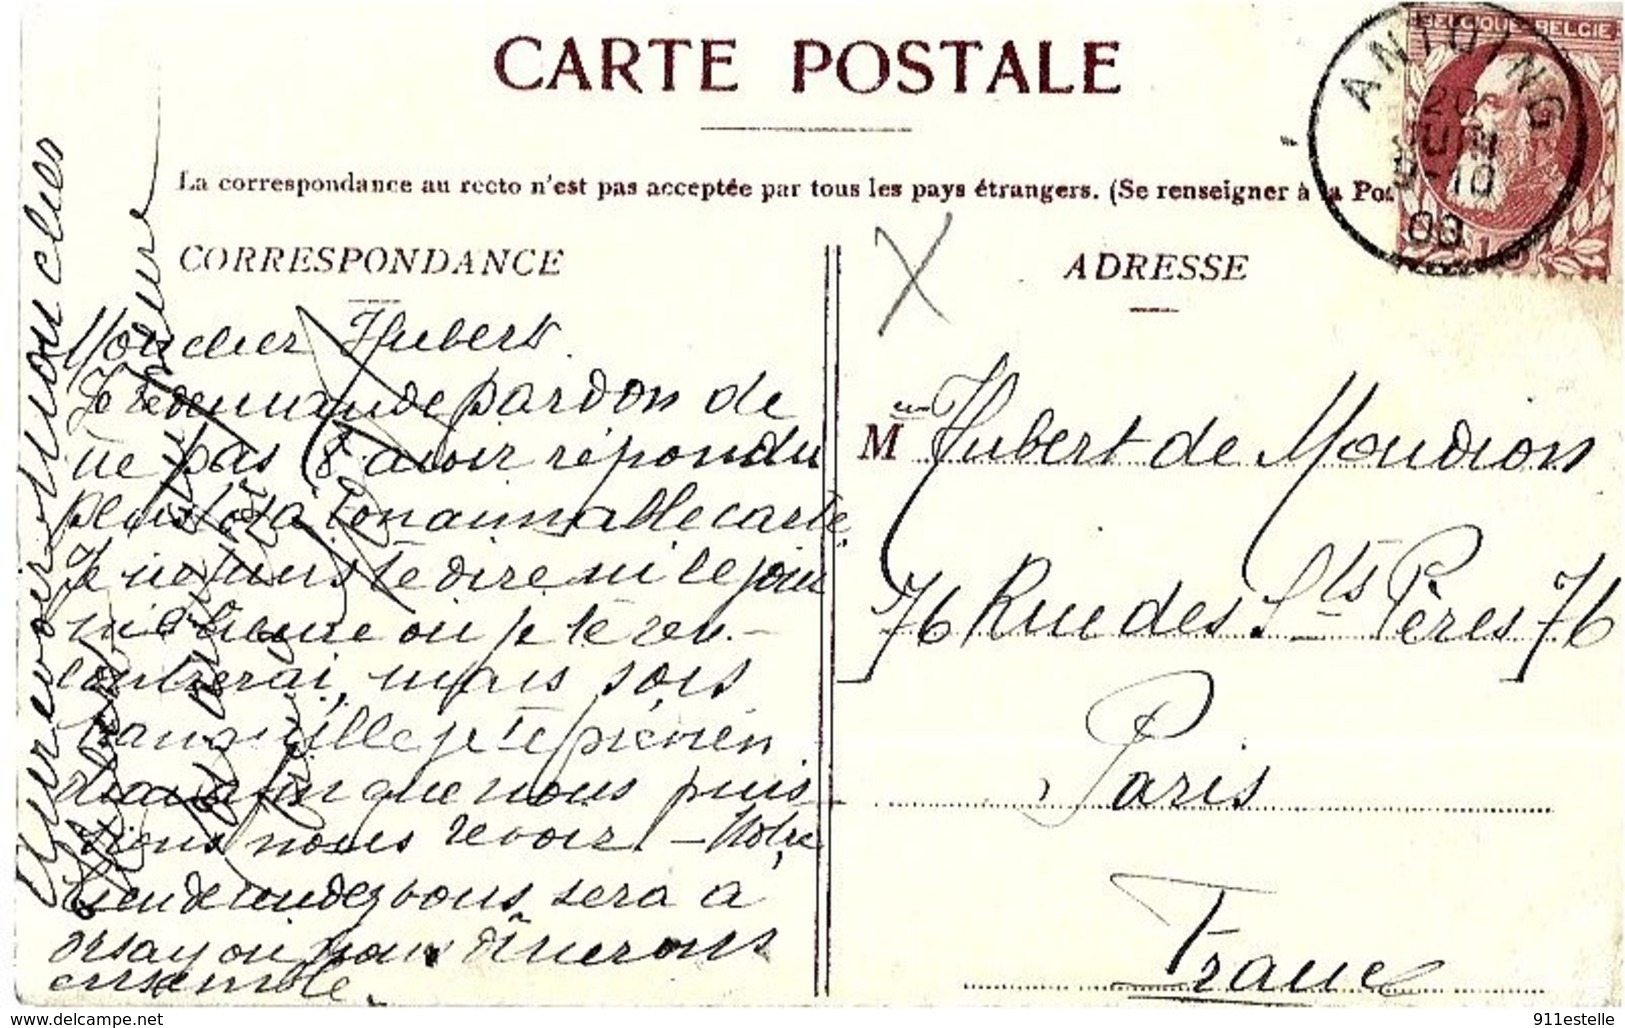 CARTE POSTALE
La correspondance au recto n'est pas acceptée par tous les pays étrangers. (Se renseigner à la Pos
CORRESPONDANCE
ADRESSE
BELGIQUE-BELGIE
ANTOING
20
JUIN
10
09
Mon cher Hubert.
Je te demande pardon de
ne pas avoir répondu
plus tôt à ton aimable carte
Je ne puis te dire ni le jour
ni l'heure où je te ren-
contrerai, mais sois
tranquille je te prévien
drai afin que nous puis-
sions nous revoir. - Notre
lieu de rendez vous sera à
orsay où nous dînerons
ensemble.
Au revoir mon cher
Mr Hubert de Moudion
76 Rue des Sts Pères 76
Paris
France
www.delcampe.net
911estelle